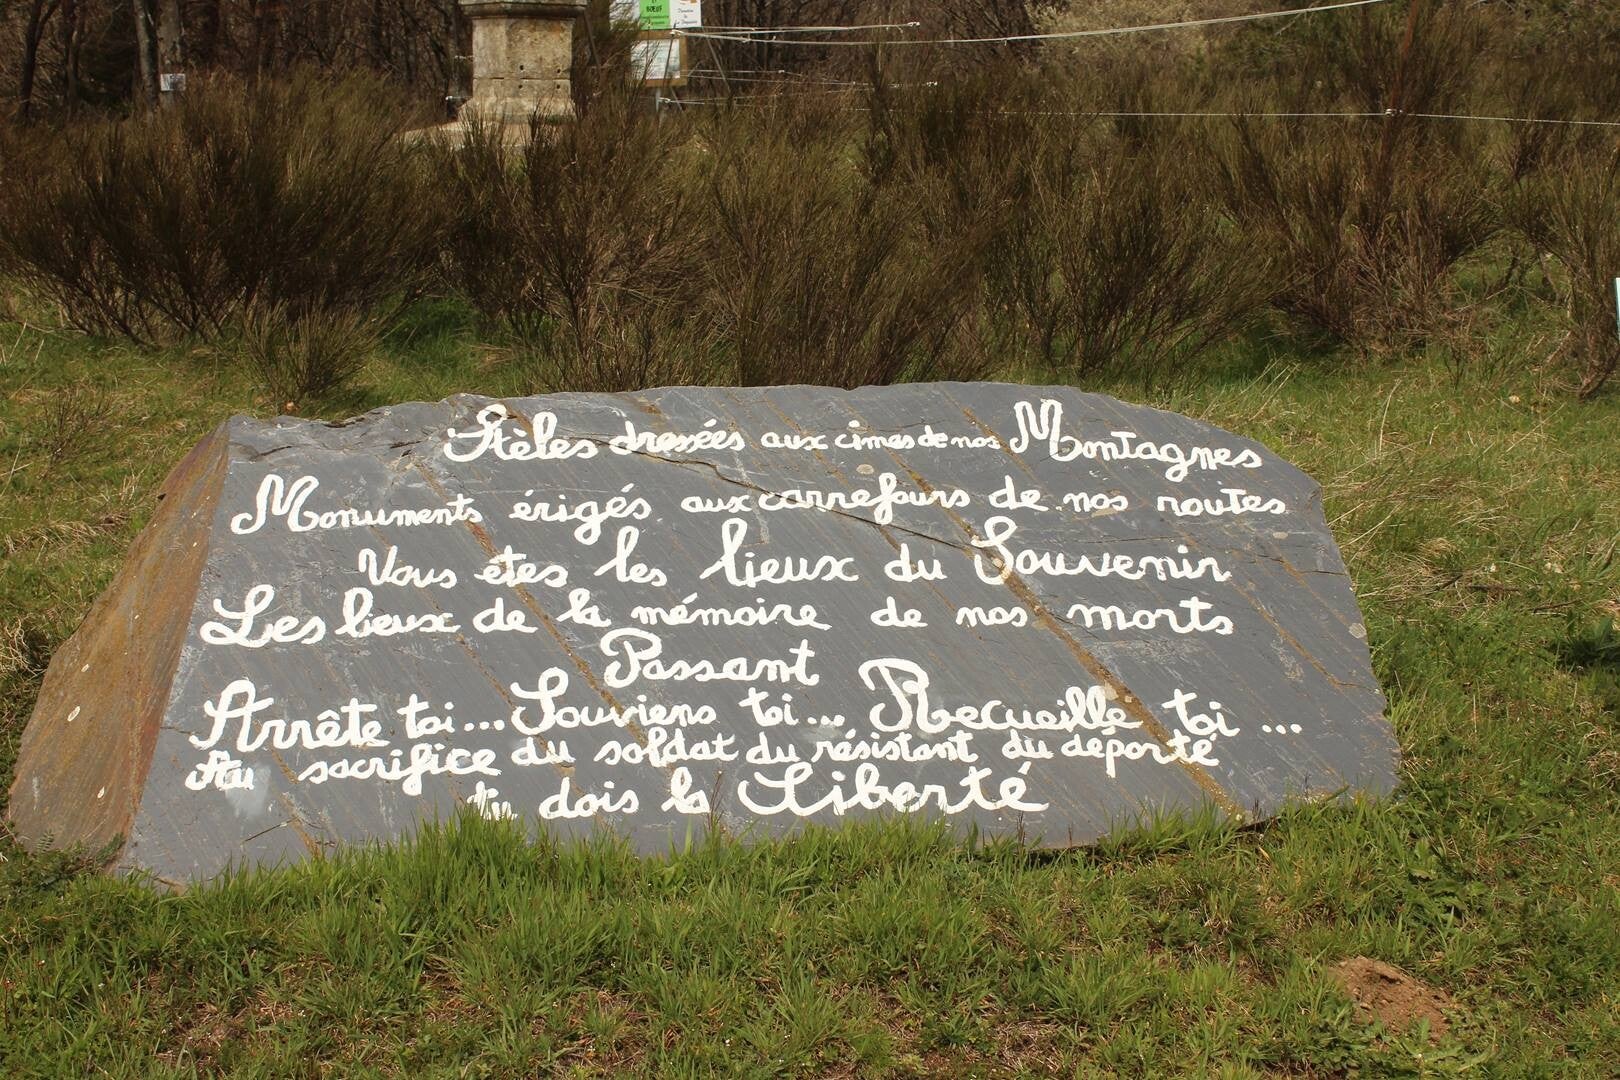 ET
BOEUF
Stèles dressées aux cimes de nos Montagnes
Monuments érigés aux carrefours de nos routes
Vous êtes les lieux du Souvenir
Les lieux de la mémoire de nos morts
Passant
Arrête toi... Souviens toi... Recueille toi...
Au sacrifice du soldat du résistant du déporté
tu dois la Liberté